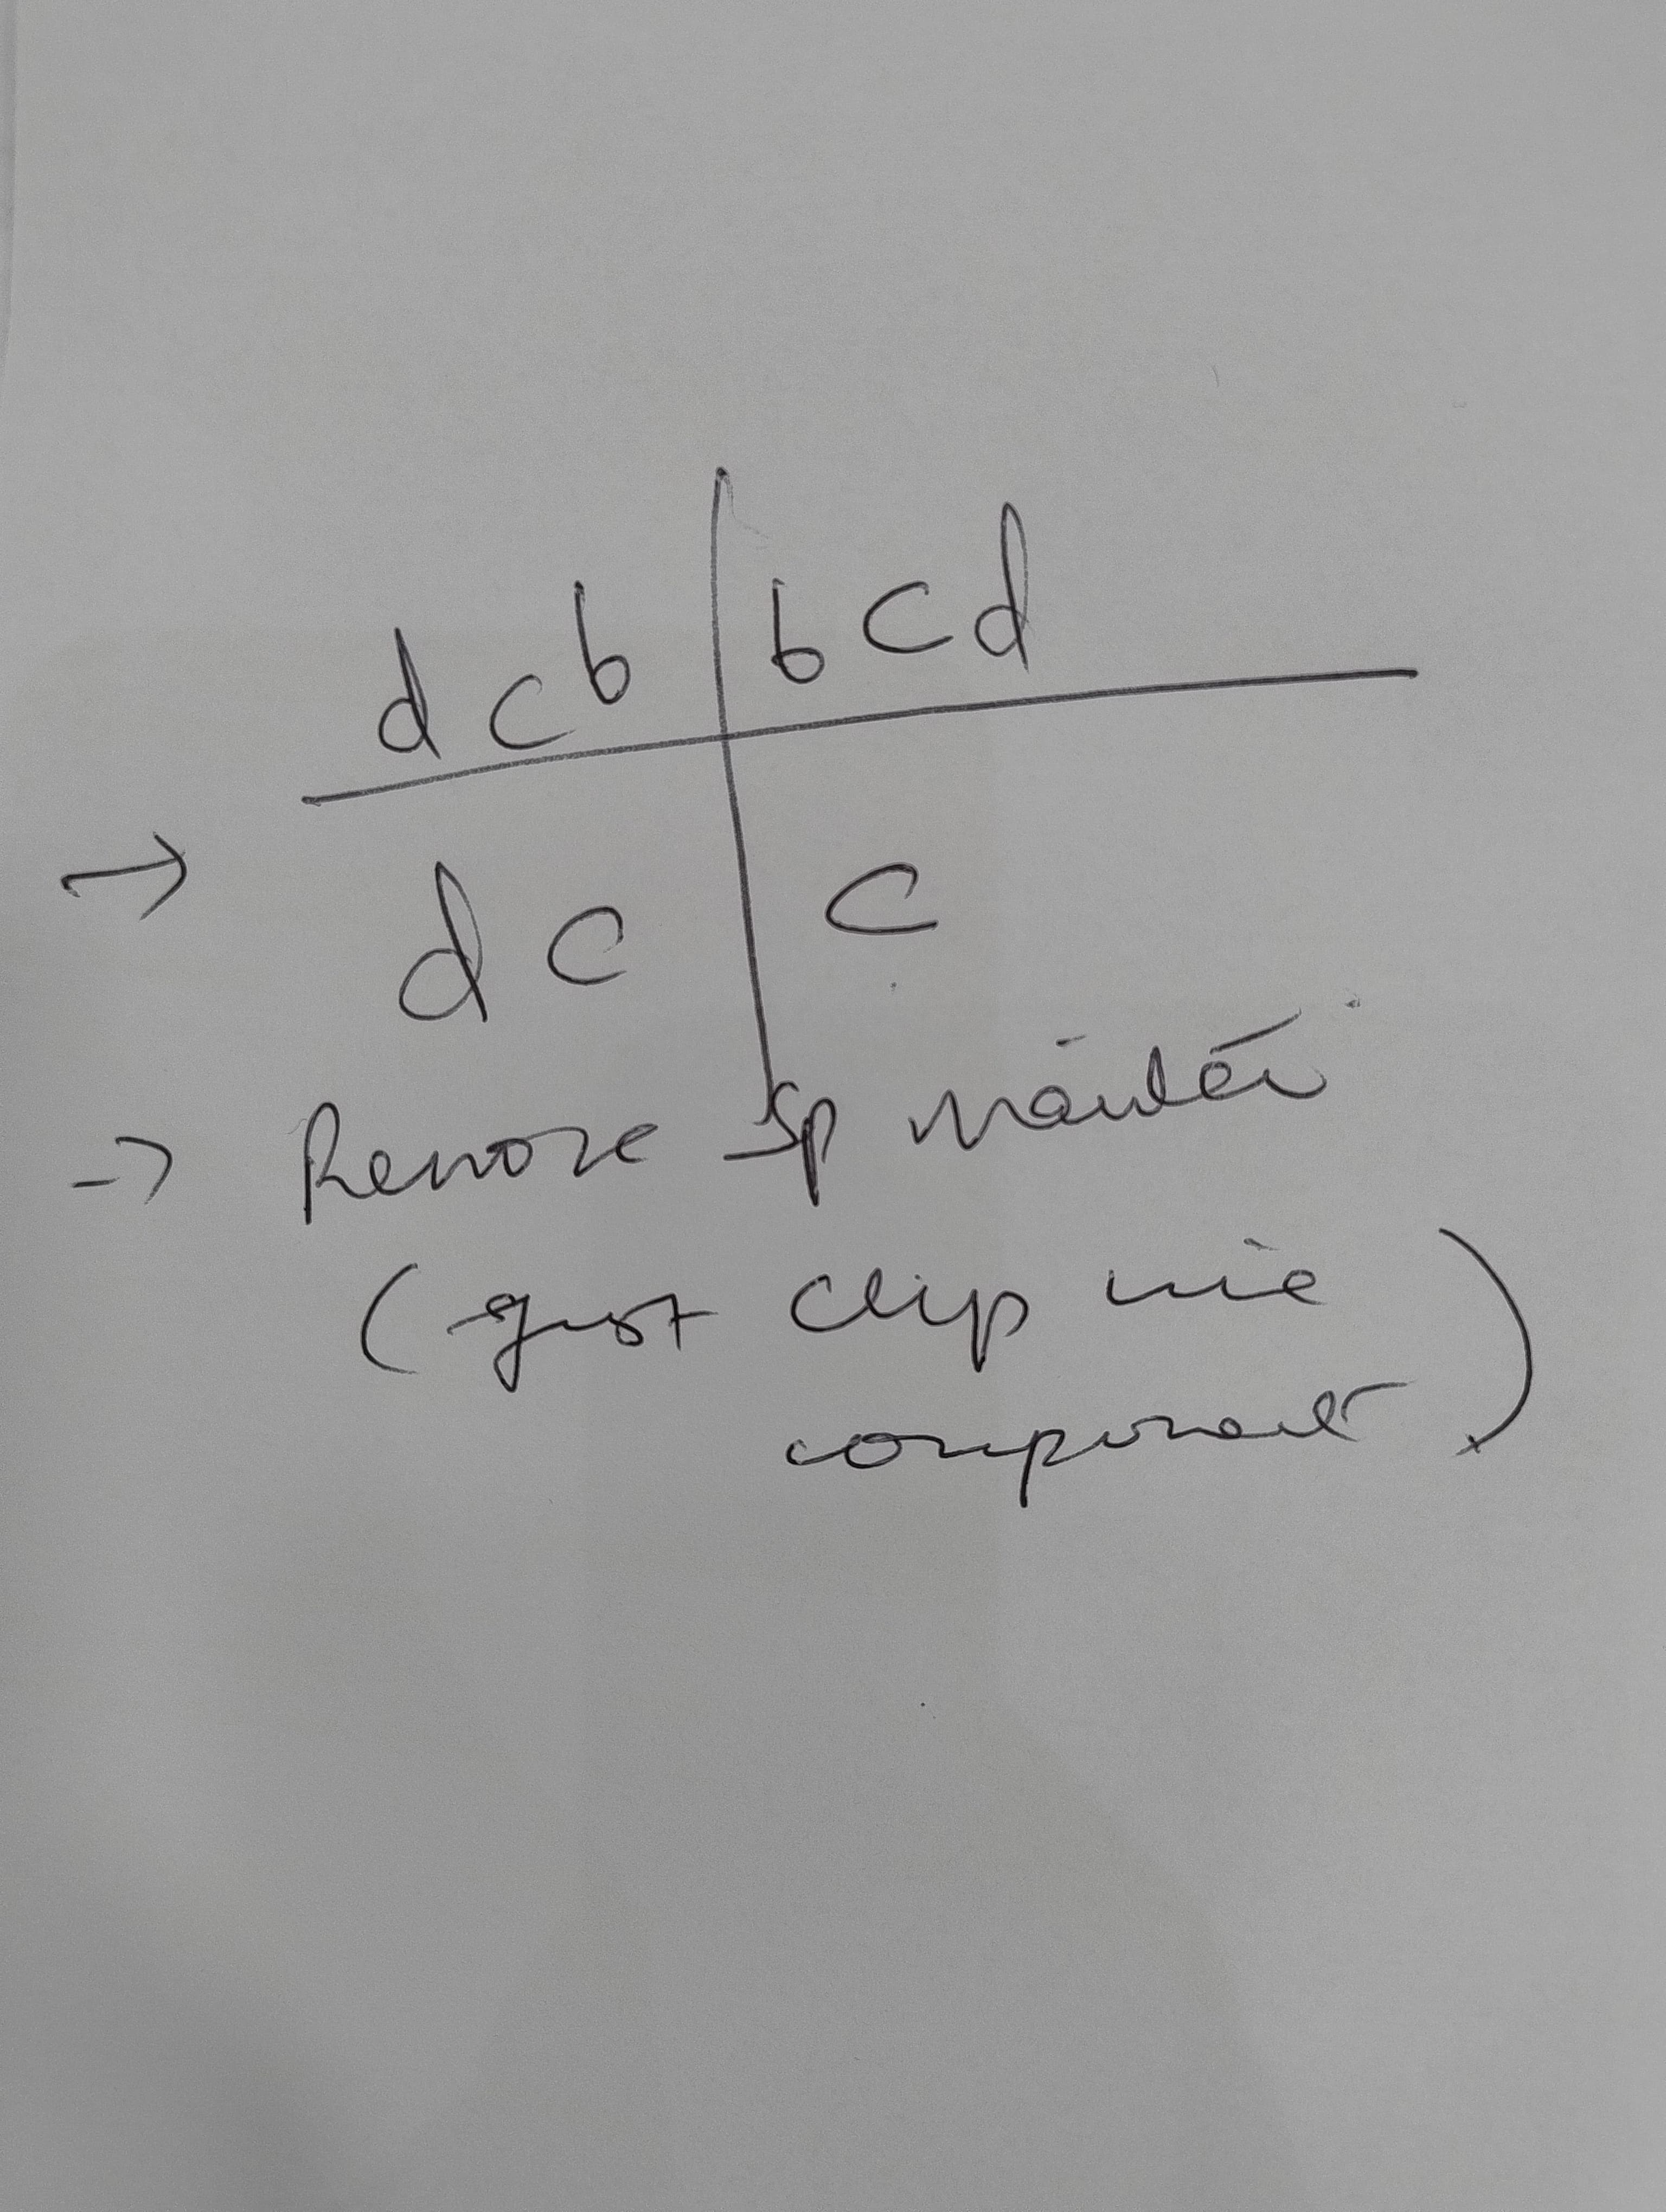 d c b | b c d
→ d c | c
→ Remove sp mainter
(just clip wire
component)